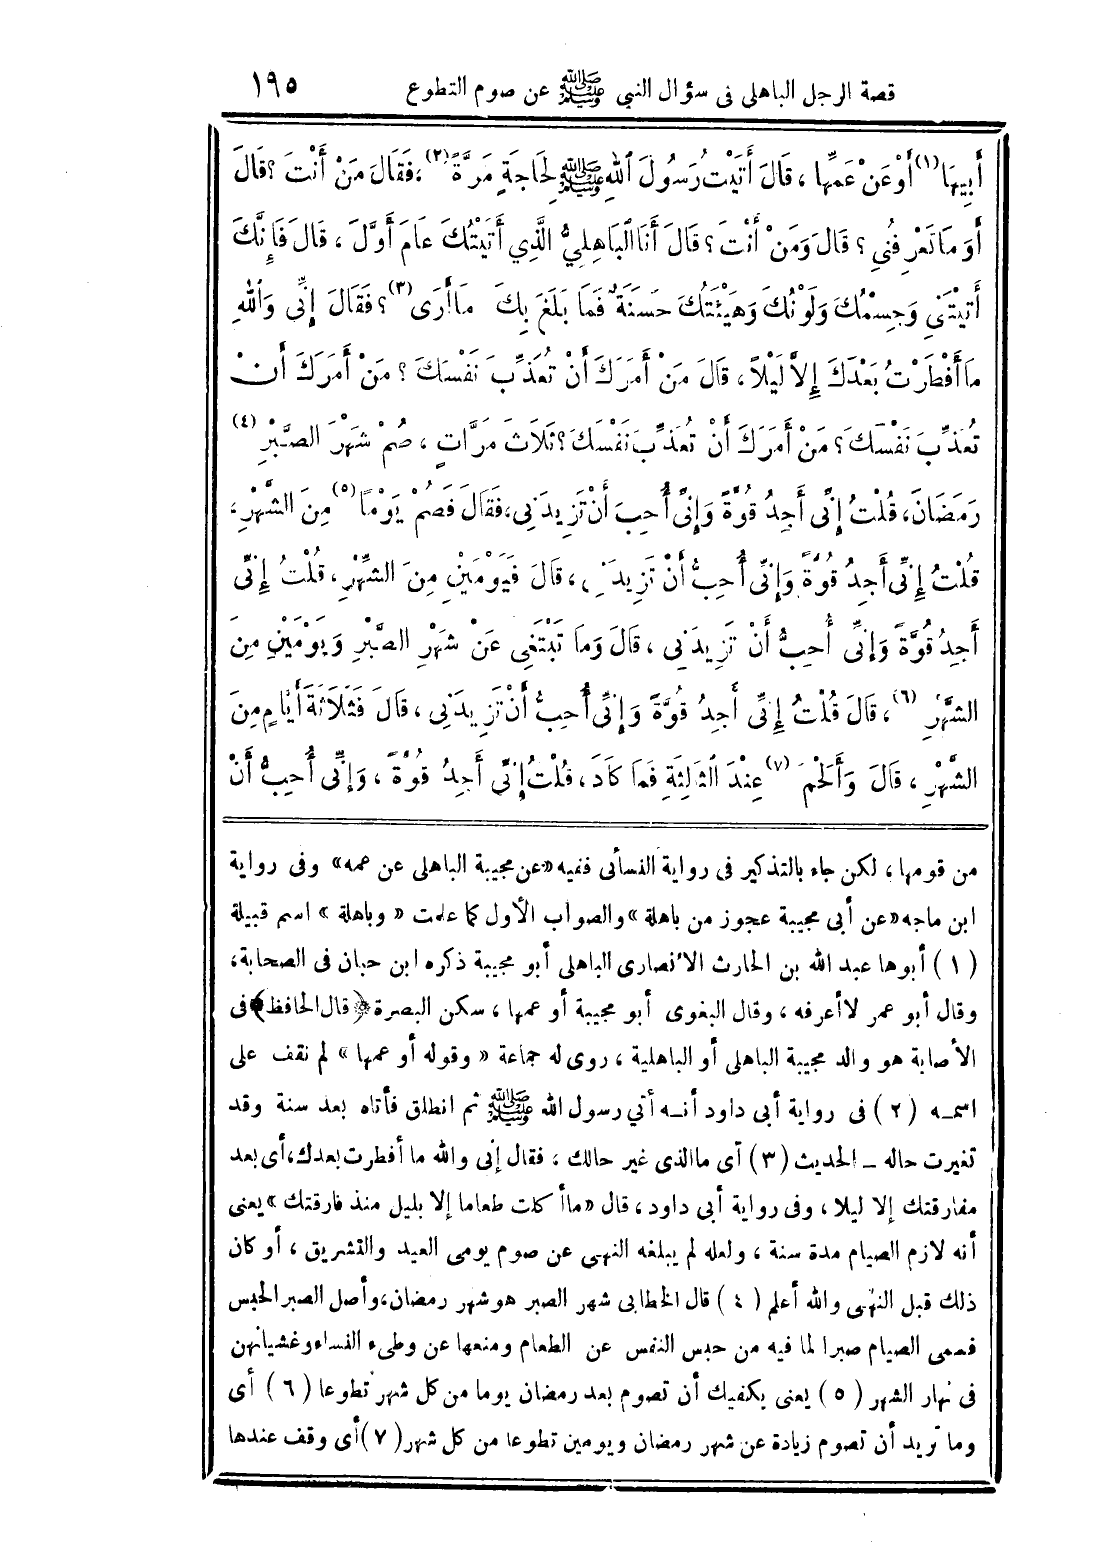 قصة الرجل الباهلى فى سؤال النبي ﷺ عن صوم التطوع ١٩٥
أَبِيهَا (١) أَوْ عَنْ عَمِّهَا ، قَالَ أَتَيْتُ رَسُولَ اللهِ ﷺ لِحَاجَةٍ مَرَّةً (٢) ، فَقَالَ مَنْ أَنْتَ ؟ قَالَ
أَوَ مَا تَعْرِفُنِي ؟ قَالَ وَمَنْ أَنْتَ ؟ قَالَ أَنَا الْبَاهِلِيُّ الَّذِي أَتَيْتُكَ عَامَ أَوَّلَ ، قَالَ فَإِنَّكَ
أَتَيْتَنِي وَجِسْمُكَ وَلَوْنُكَ وَهَيْئَتُكَ حَسَنَةٌ فَمَا بَلَغَ بِكَ مَا أَرَى (٣) ؟ فَقَالَ إِنِّى وَاللهِ
مَا أَفْطَرْتُ بَعْدَكَ إِلاَّ لَيْلاً ، قَالَ مَنْ أَمَرَكَ أَنْ تُعَذِّبَ نَفْسَكَ ؟ مَنْ أَمَرَكَ أَنْ
تُعَذِّبَ نَفْسَكَ ؟ مَنْ أَمَرَكَ أَنْ تُعَذِّبَ نَفْسَكَ ؟ ثَلَاثَ مَرَّاتٍ ، صُمْ شَهْرَ الصَّبْرِ (٤)
رَمَضَانَ ، قُلْتُ إِنِّى أَجِدُ قُوَّةً وَإِنِّى أُحِبُّ أَنْ تَزِيدَنِى ، فَقَالَ فَصُمْ يَوْمًا (٥) مِنَ الشَّهْرِ ،
قُلْتُ إِنِّى أَجِدُ قُوَّةً وَإِنِّى أُحِبُّ أَنْ تَزِيدَنِى ، قَالَ فَيَوْمَيْنِ مِنَ الشَّهْرِ ، قُلْتُ إِنِّى
أَجِدُ قُوَّةً وَإِنِّى أُحِبُّ أَنْ تَزِيدَنِى ، قَالَ وَمَا تَبْتَغِى عَنْ شَهْرِ الصَّبْرِ وَيَوْمَيْنِ مِنَ
الشَّهْرِ (٦) ، قَالَ قُلْتُ إِنِّى أَجِدُ قُوَّةً وَإِنِّى أُحِبُّ أَنْ تَزِيدَنِى ، قَالَ فَثَلَاثَةَ أَيَّامٍ مِنَ
الشَّهْرِ ، قَالَ وَأَلْحَمَ (٧) عِنْدَ الثَّالِثَةِ فَمَا كَادَ ، قُلْتُ إِنِّى أَجِدُ قُوَّةً ، وَإِنِّى أُحِبُّ أَنْ
من قومها ، لكن جاء بالتذكير فى رواية النسائى ففيه « عن مجيبة الباهلى عن عمه » وفى رواية
ابن ماجه « عن أبى مجيبة عجوز من باهلة » والصواب الأول كما علمت « وباهلة » اسم قبيلة
(١) أبوها عبد الله بن الحارث الأنصارى الباهلى أبو مجيبة ذكره ابن حبان فى الصحابة ،
وقال أبو عمر لا أعرفه ، وقال البغوى أبو مجيبة أو عمها ، سكن البصرة ﴿ قال الحافظ ﴾ فى
الأصابة هو والد مجيبة الباهلى أو الباهلية ، روى له جماعة « وقوله أو عمها » لم نقف على
اسمـه (٢) فى رواية أبى داود أنـه أتى رسول الله ﷺ ثم انطلق فأتاه بعد سنة وقد
تغيرت حاله ـ الحديث (٣) أى ما الذى غير حالك ، فقال إنى والله ما أفطرت بعدك ، أى بعد
مفارقتك إلا ليلا ، وفى رواية أبى داود ، قال « ما أكلت طعاما إلا بليل منذ فارقتك » يعنى
أنه لازم الصيام مدة سنة ، ولعله لم يبلغه النهى عن صوم يومى العيد والتشريق ، أو كان
ذلك قبل النهى والله أعلم (٤) قال الخطابى شهر الصبر هو شهر رمضان ، وأصل الصبر الحبس
فسمى الصيام صبرا لما فيه من حبس النفس عن الطعام ومنعها عن وطىء النساء وغشيانهن
فى نهار الشهر (٥) يعنى يكفيك أن تصوم بعد رمضان يوما من كل شهر تطوعا (٦) أى
وما تريد أن تصوم زيادة عن شهر رمضان ويومين تطوعا من كل شهر (٧) أى وقف عندها